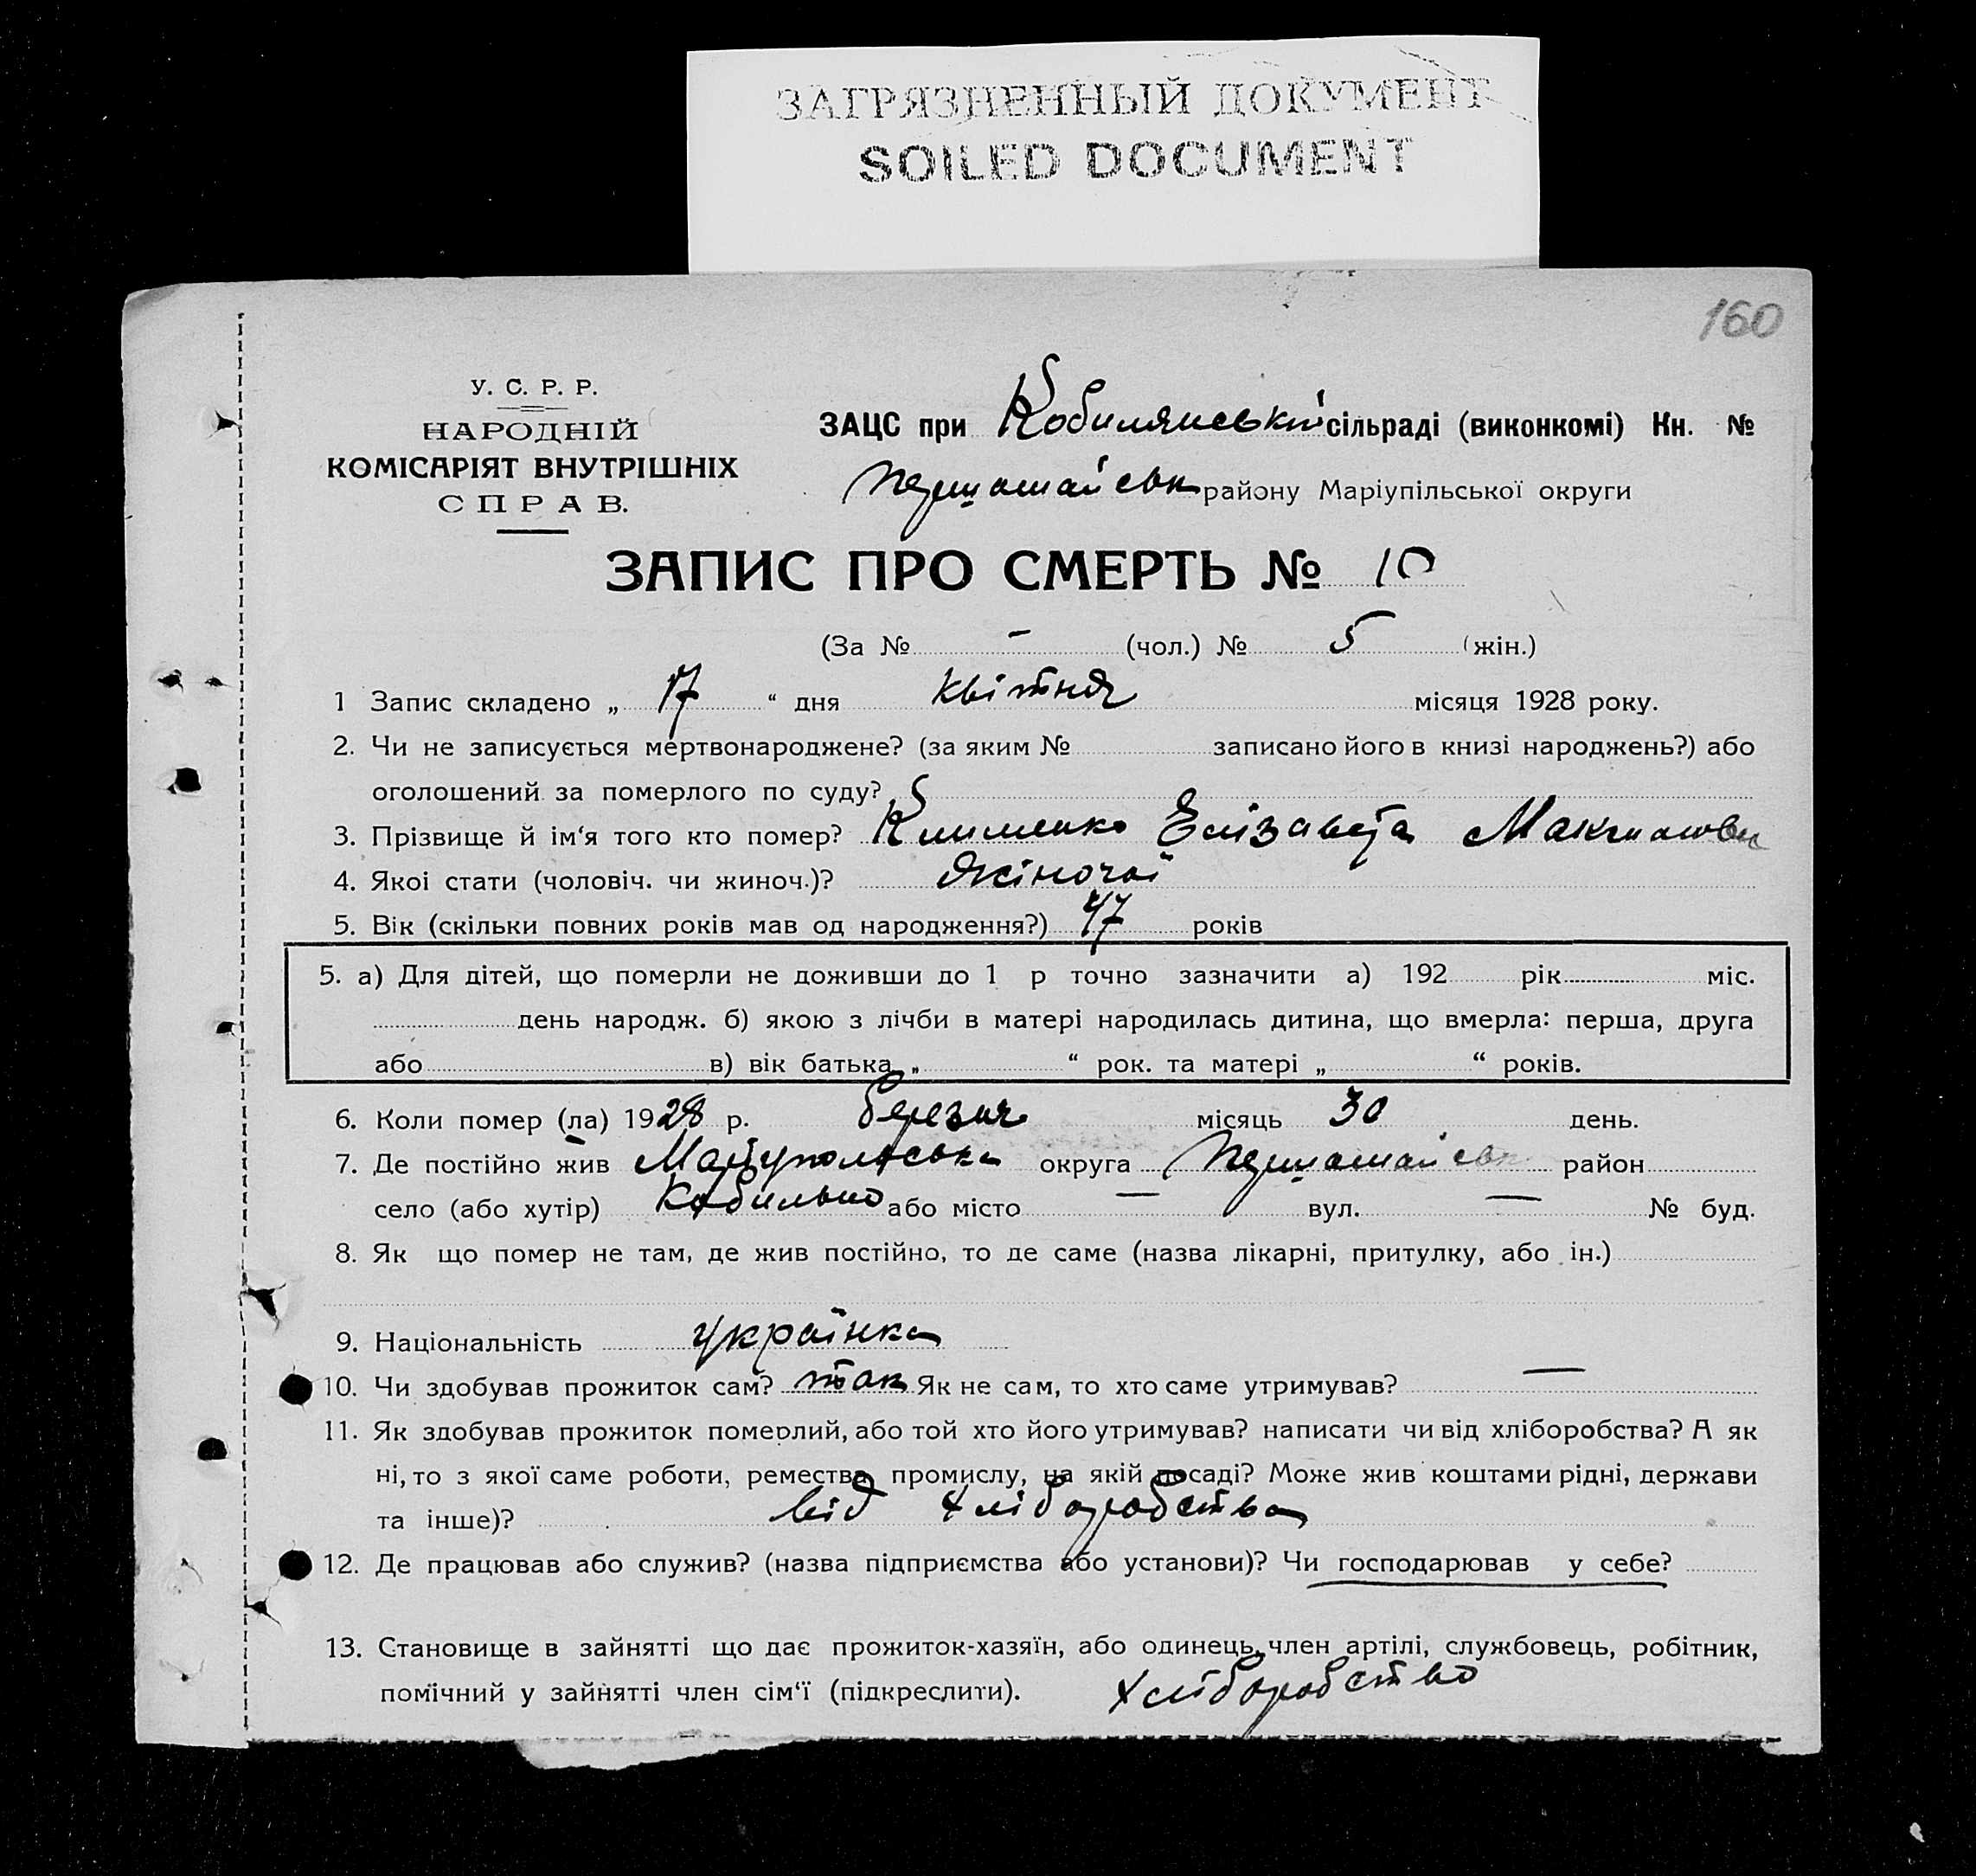 ЗАГРЯЗНЕННЫЙ ДОКУМЕНТ
SOILED DOCUMENT
160
У. С. Р. Р.
НАРОДНІЙ
КОМІСАРІЯТ ВНУТРІШНІХ
СПРАВ.
ЗАЦС при Кобилянській сільраді (виконкомі) Кн. №
Першомайськ району Маріупільської округи
ЗАПИС ПРО СМЕРТЬ № 10
(За № – (чол.) № 5 (жін.)
1 Запис складено „ 17 “ дня квітня місяця 1928 року.
2. Чи не записується мертвонароджене? (за яким № записано його в книзі народжень?) або
оголошений за померлого по суду?
3. Прізвище й ім‘я того кто помер? Клименко Елізавета
4. Якоі стати (чоловіч. чи жиноч.)? Жіночої
5. Вік (скільки повних років мав од народження?) 47 років
5. а) Для дітей, що померли не доживши до 1 р точно зазначити а) 192 рік міс.
день народж. б) якою з лічби в матері народилась дитина, що вмерла: перша, друга
або в) вік батька „ “ рок. та матері „ “ років.
6. Коли помер (ла) 1928 р. березня місяць 30 день.
7. Де постійно жив округа Першомайськ район
село (або хутір) Кобильно або місто — вул. — № буд.
8. Як що помер не там, де жив постійно, то де саме (назва лікарні, притулку, або ін.)
9. Національність українка
10. Чи здобував прожиток сам? так Як не сам, то хто саме утримував? —
11. Як здобував прожиток померлий, або той хто його утримував? написати чи від хліборобства? А як
ні, то з якої саме роботи, ремества, промислу, на якій посаді? Може жив коштами рідні, держави
та інше)? від хліборобства
12. Де працював або служив? (назва підприємства або установи)? Чи господарював у себе?
13. Становище в зайнятті що дає прожиток-хазяїн, або одинець, член артілі, службовець, робітник,
помічний у зайнятті член сім‘ї (підкреслити). хліборобство